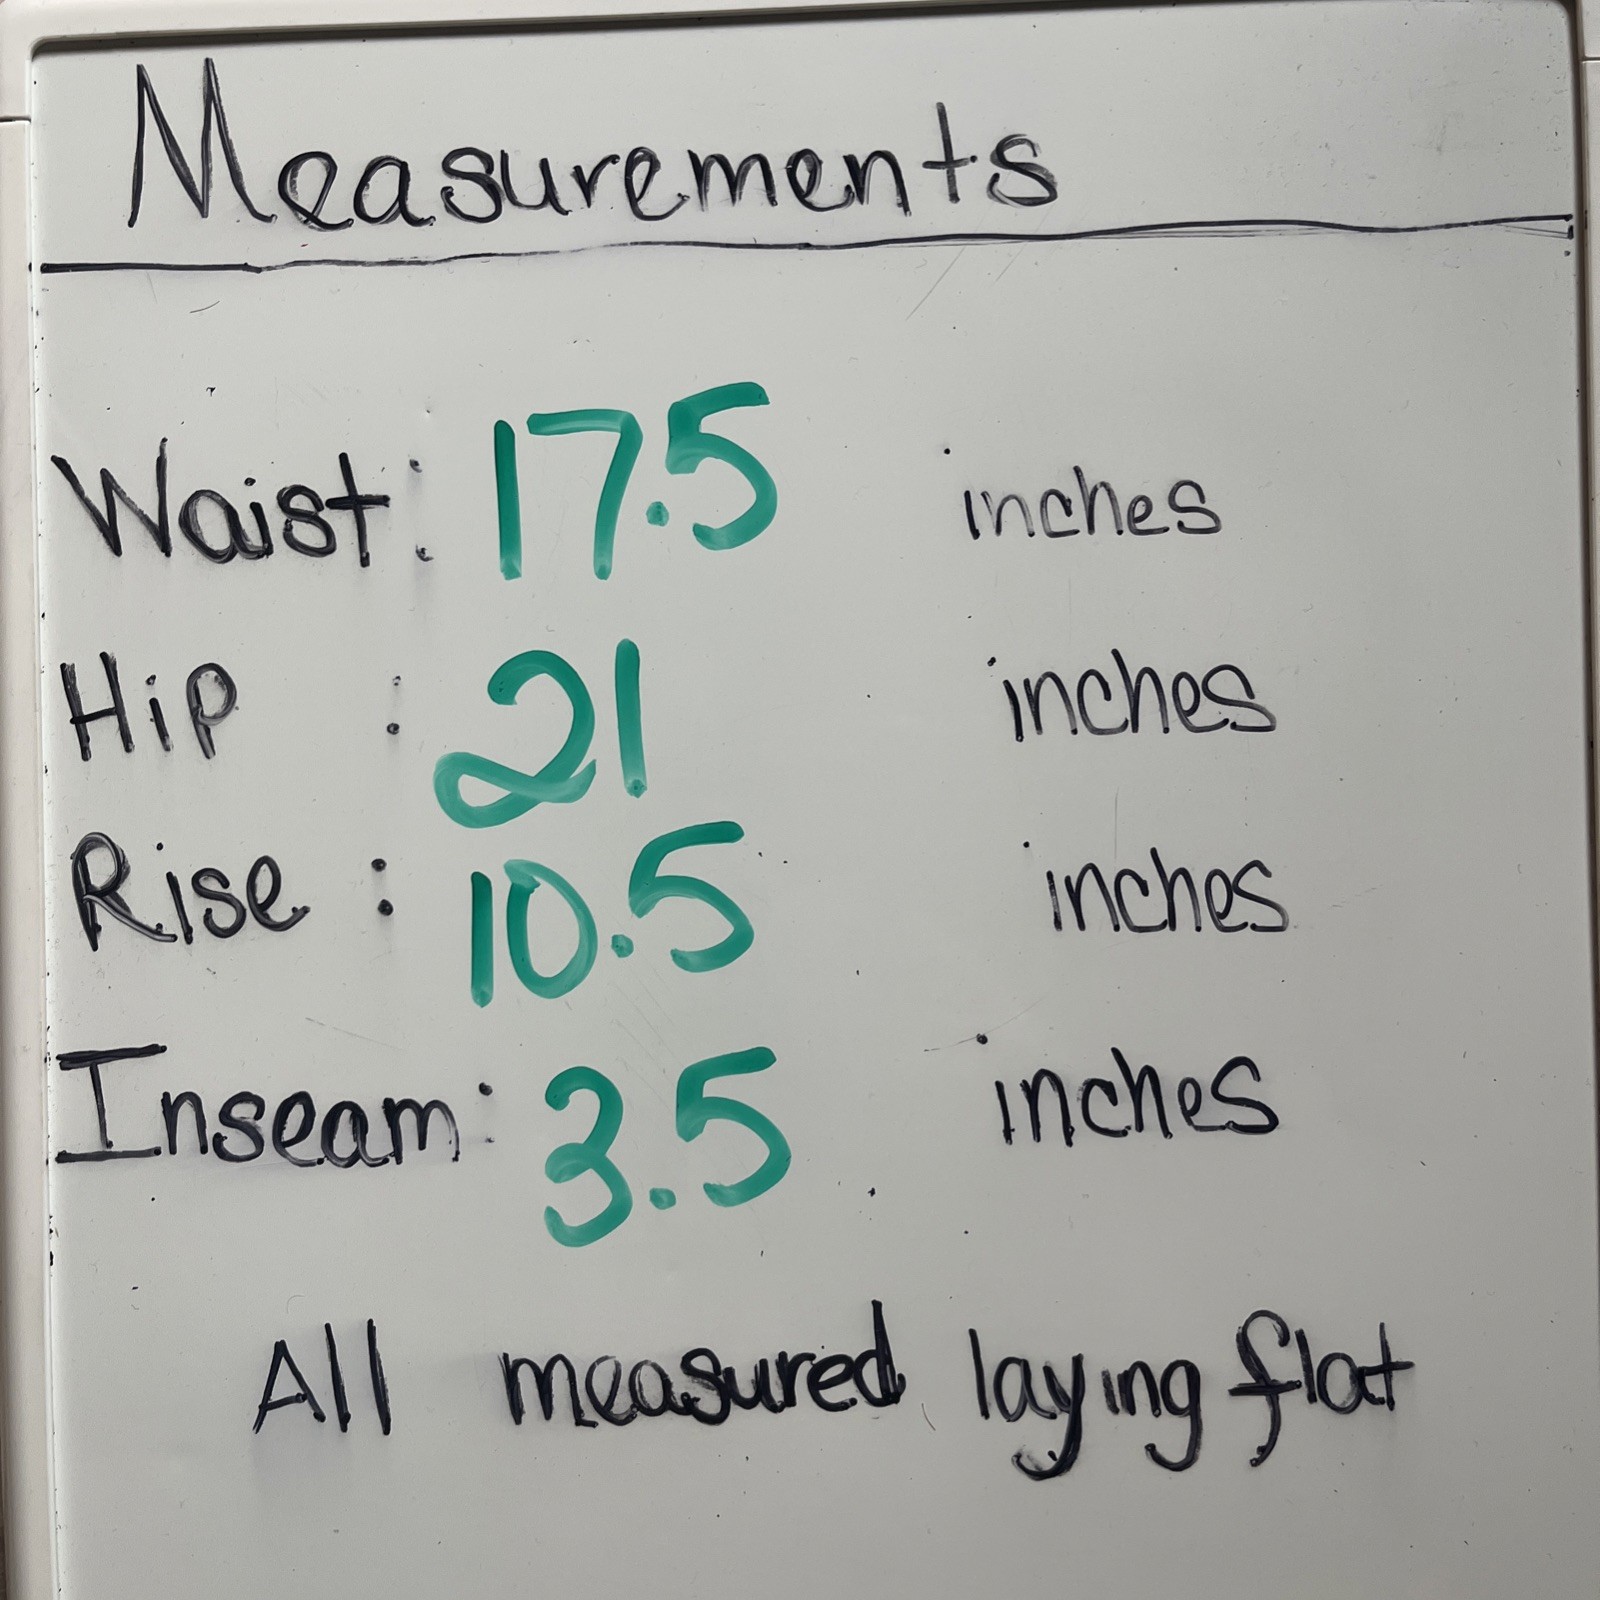 Measurements
Waist: 17.5 inches
Hip : 21 inches
Rise : 10.5 inches
Inseam: 3.5 inches
All measured laying flat